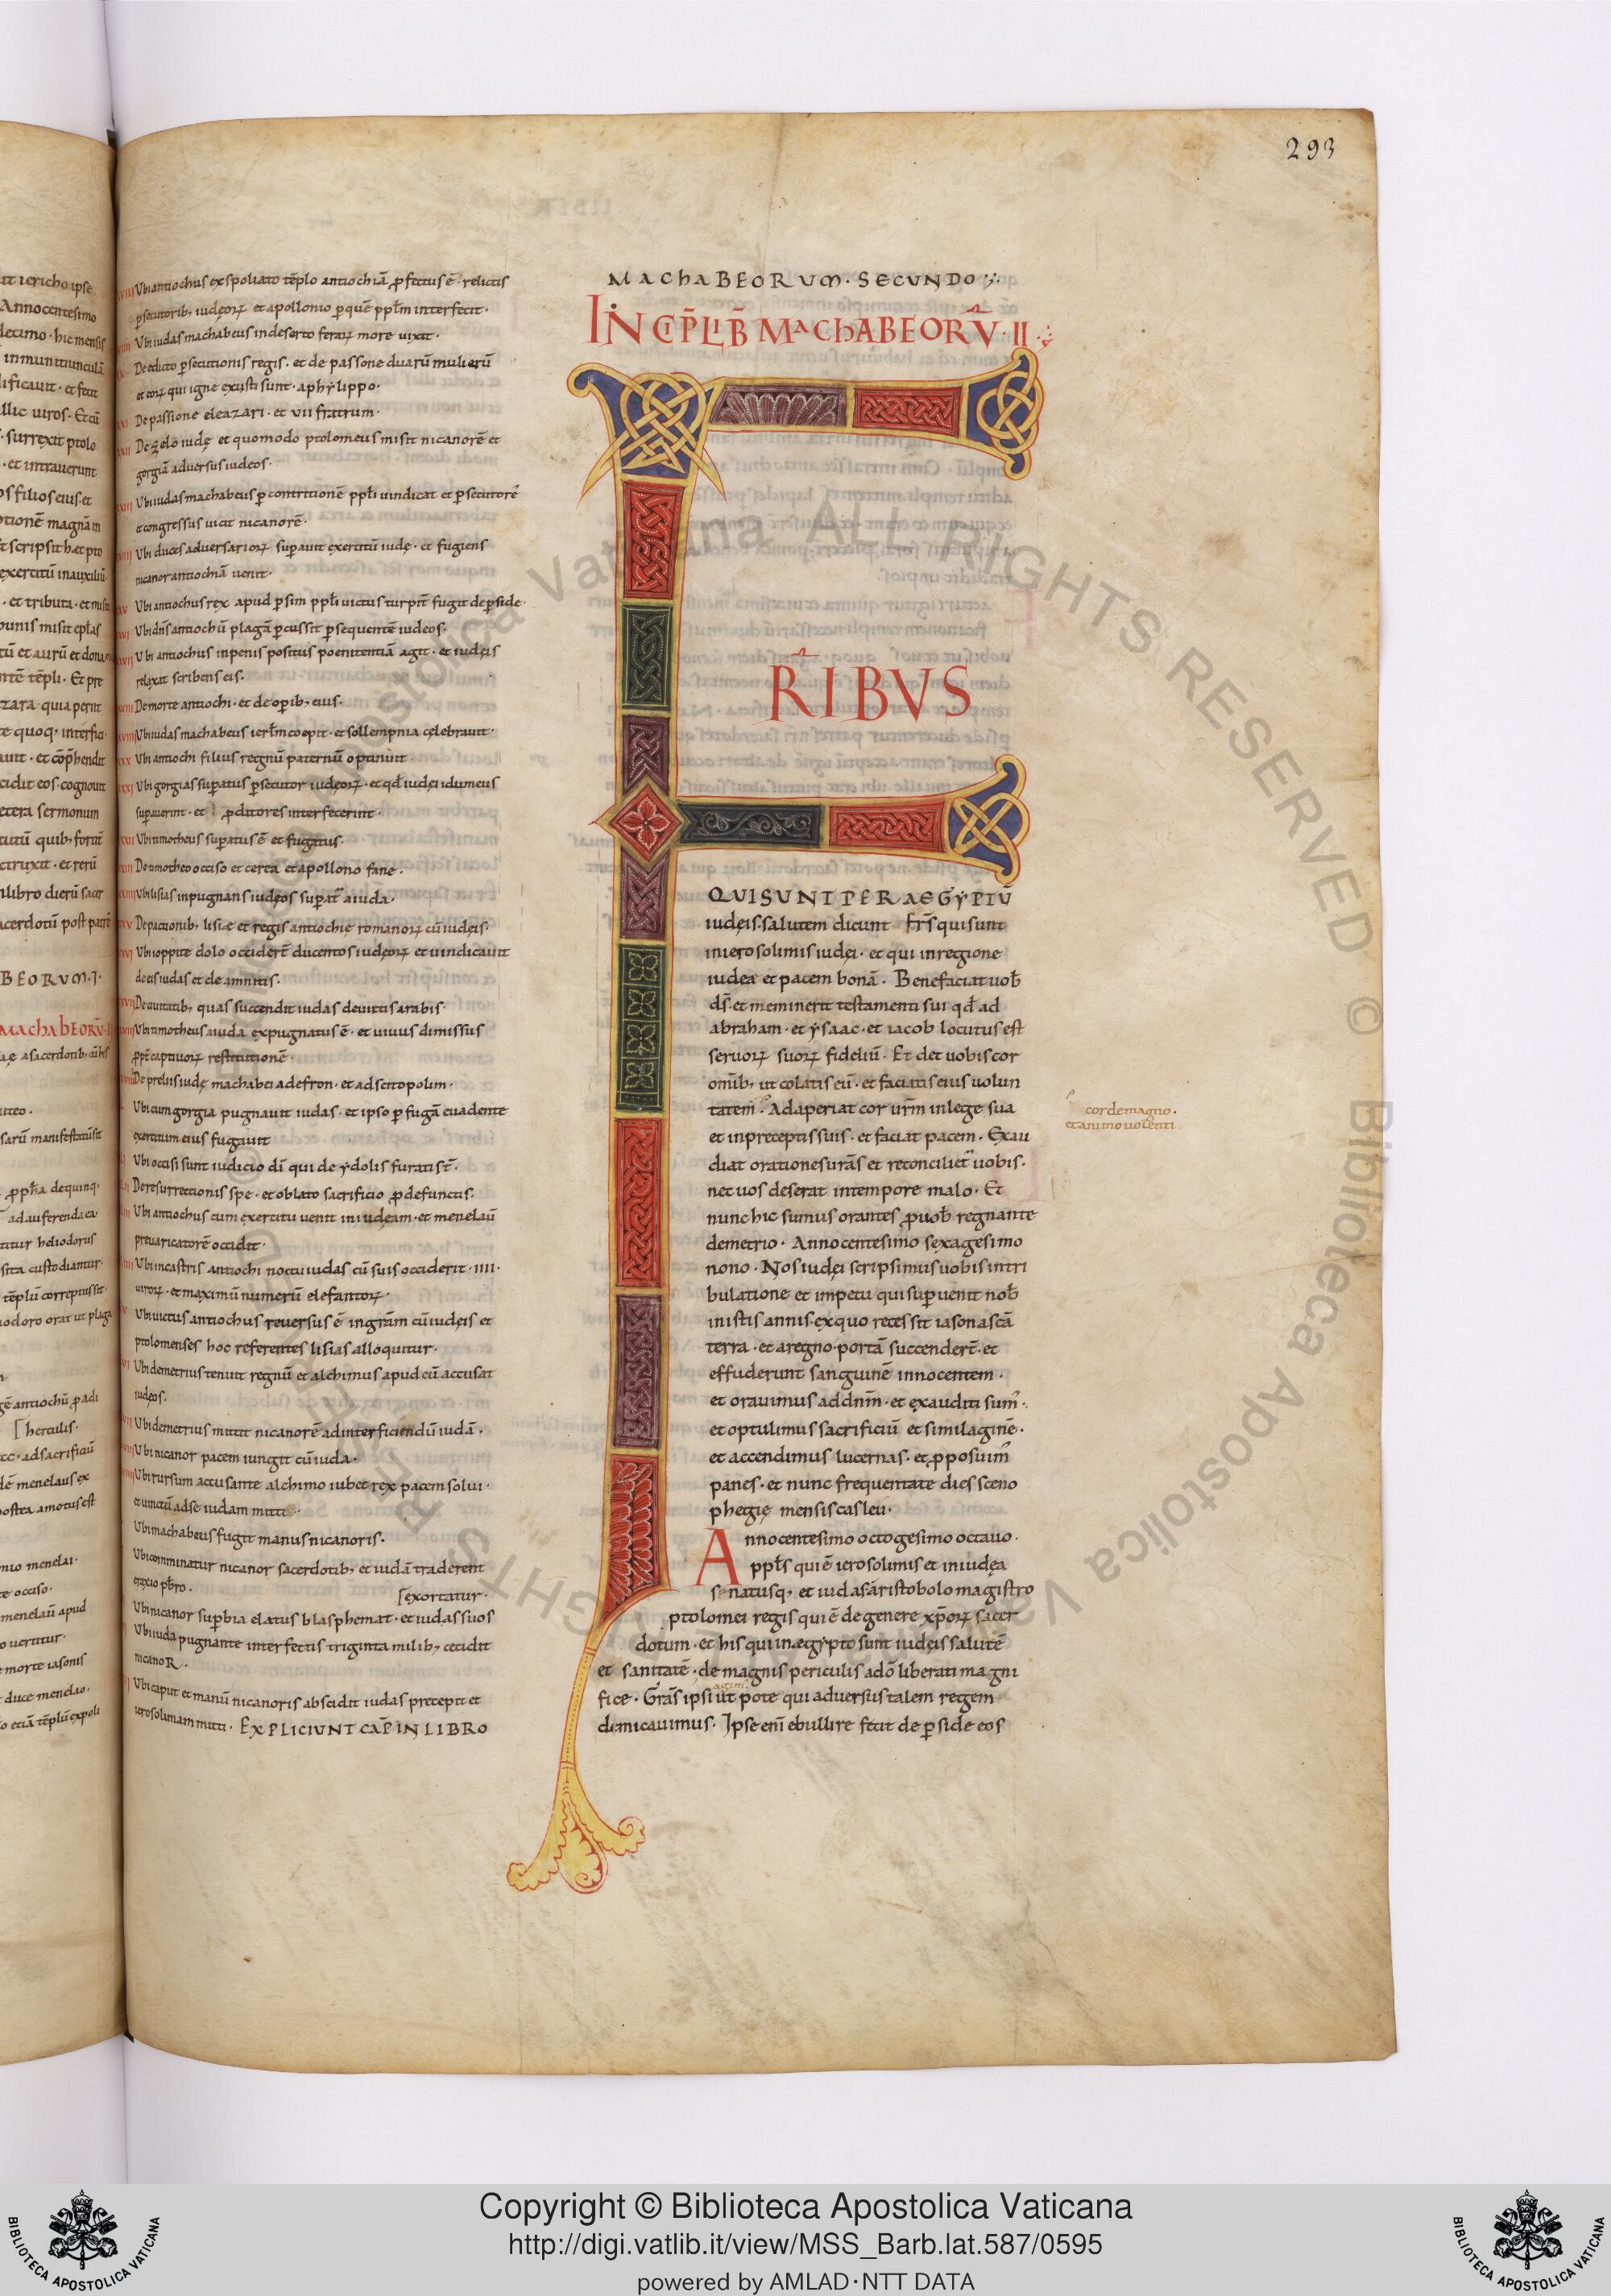 293
Ubi antiochus exspoliato tẽplo antiochiã ꝓfectus ẽ · relictis
ꝑsecutorib; iudęoꝝ et apollonio ꝑ quẽ ppl̃m interfecit ·
Ubi iudas machabeus in deserto feraꝝ more uixit ·
De edicto ꝑsecutionis regis · et de passone duarũ mulierũ
et eoꝝ qui igne exusti sunt · a phylippo ·
De passione eleazari · et VII fratrum ·
De zelo iudę et quomodo ptolomeus misit nicanorẽ et
gorgiã aduersus iudeos ·
Ubi iudas machabeus ꝑ contritionẽ ppl̃i uindicat et ꝑsecutorẽ
et congressus uicit nicanorẽ ·
Ubi duces aduersarioꝝ suꝑauit exercitũ iudę · et fugiens
nicanor antiochiã uenit ·
Ubi antiochus rex apud ꝑsim ppl̃i uictus turpit̃ fugit de ꝑside ·
Ubi dñs antiochũ plagã ꝑcussit ꝑsequentẽ iudeos ·
Ubi antiochus in penis positus poenitentiã agit · et iudęis
relaxat scribens eis ·
De morte antiochi · et de oꝑib; eius ·
Ubi iudas machabeus ierl̃m coepit · et sollempnia cęlebrauit ·
Ubi antiochi filius regnũ paternũ optinuit
Ubi gorgias suꝑatus ꝑsecutor iudęoꝝ · et qđ iudęi idumeus
suꝑauerint · et ꝓditores interfecerint ·
Ubi timotheus suꝑatus ẽ et fugatus ·
De timotheo occiso et cerea et apollono fane ·
Ubi lisias inpugnans iudęos suꝑat̃ a iuda ·
De pactionib; lisiæ et regis antiochię romanoꝝ cũ iudęis ·
Ubi ioppite dolo occiderт̃ ducentos iudęoꝝ et uindicauit
de eis iudas et de amnitis ·
De ciuitatib; quas succendit iudas deuictis arabis ·
Ubi timotheus a iuda expugnatus ẽ · et uiuus dimissus
ꝓpt̃ captiuoꝝ restitutionẽ ·
De preliis iudę machabei ad efron · et ad scitopolim ·
Ubi cum gorgia pugnauit iudas · et ipso ꝑ fugã euadente
exercitum eius fugauit
Ubi occisi sunt iudicio dĩ qui de ydolis furati st̃ ·
De resurrectionis spe · et oblato sacrificio ꝓ defunctis ·
Ubi antiochus cum exercitu uenit in iudęam · et menelaũ
preuaricatorẽ occidit ·
Ubi in castris antiochi noctu iudas cũ suis occiderit · IIII ·
uiroꝝ · et maximũ numerũ elefantoꝝ ·
Ubi uictus antiochus reuersus ẽ in gr̃am cũ iudęis et
ptolomenses hoc referentes lisias alloquitur ·
Ubi demetrius tenuit regnũ et alchimus apud eũ accusat
iudęos ·
Ubi demetrius mittit nicanorẽ ad interficiendũ iudã ·
Ubi nicanor pacem iungit cũ iuda ·
Ubi rursum accusante alchimo iubet rex pacem solui ·
et uinctũ ad se iudam mitti
Ubi machabeus fugit manus nicanoris ·
Ubi comminatur nicanor sacerdotib; et iudã traderent
erazio pb̃ro · [exortatur ·
Ubi nicanor suꝑbia elatus blasphemat · et iudas suos
Ubi iuda pugnante interfectis triginta milib; cecidit
nicanoR ·
Ubi caput et manũ nicanoris abscidit iudas precepit et
ierosolimam mitti · EXPLICIUNT CAP̃ IN LIBRO
MACHABEORUM · SECUNDO
INCIP̃ LIB̃ MACHABEORṼ · II
F
R̃IBVS
QUI SUNT PER AEGYPTŨ
iudęis salutem dicunt Fr̃s qui sunt
in ierosolimis iudęi · et qui in regione
iudea et pacem bonã · Benefaciat uob̃
d̃s · et meminerit testamenti sui qđ ad
abraham · et ysaac · et iacob locutus est
seruoꝝ suoꝝ fideliũ · Et det uobis cor
om̃ib; ut colatis eũ · et faciatis eius uolun
tatem · Adaperiat cor ur̃m in lege sua
et in preceptis suis · et faciat pacem · Exau
diat orationes ur̃as et reconciliet̃ uobis ·
nec uos deserat in tempore malo · Et
nunc hic sumus orantes ꝓ uob̃ regnante
demetrio · Anno centesimo sexagesimo
nono · Nos iudęi scripsimus uobis in tri
bulatione et impetu qui suꝑuenit nob̃
in istis annis · ex quo recessit iason a sc̃ã
terra · et a regno · portã succendert̃ · et
effuderunt sanguinẽ innocentem ·
et orauimus ad dñm · et exauditi sum᾽ ·
et optulimus sacrificiũ et similaginẽ ·
et accendimus lucernas · et ꝓposuim᾽
panes · et nunc frequentate dies sceno
phegię mensis casleu ·
Anno centesimo octogesimo octauo ·
ppl̃s qui ẽ ierosolimis et in iudęa
senatusq; et iudas aristobolo magistro
ptolomei regis qui ẽ de genere xp̃oꝝ sacer
dotum · et his qui in ægypto sunt iudęis salutẽ
et sanitatẽ · de magnis periculis a dõ liberati magni
fice · Gr̃as ipsi agim᾽ ut pote qui aduersus talem regem
dimicauimus · Ipse enĩ ebullire fecit de ꝑside eos
corde magno ·
et animo uolenti ·
Copyright © Biblioteca Apostolica Vaticana
http://digi.vatlib.it/view/MSS_Barb.lat.587/0595
powered by AMLAD · NTT DATA
BIBLIOTECA APOSTOLICA VATICANA
BIBLIOTECA APOSTOLICA VATICANA